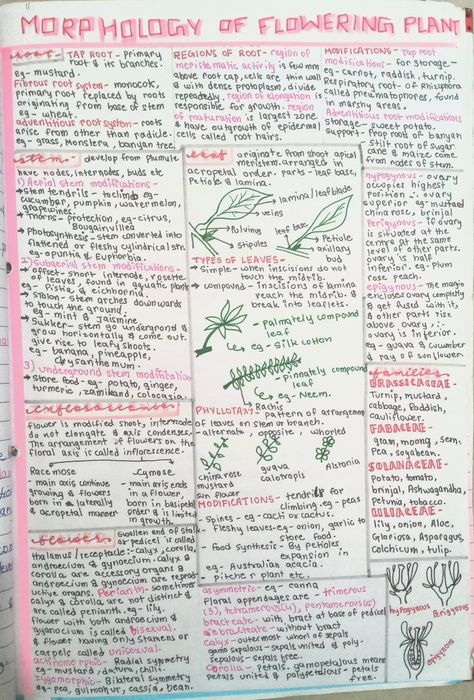 MORPHOLOGY OF FLOWERING PLANT
ROOT - TAP ROOT - primary
root & its branches.
eg - mustard.
Fibrous root system - monocots,
primary root replaced by roots
originating from base of stem
eg - wheat.
adventitious root system - roots
arise from other than radicle.
eg - grass, Monstera, banyan tree.
REGIONS OF ROOT - region of
meristematic activity is few mm
above root cap, cells are thin wall
& with dense protoplasm, divide
repeatedly. region of elongation is
responsible for growth. region
of maturation is largest zone
& have outgrowth of epidermal
cells called root hairs.
MODIFICATIONS - Tap root
modifications - for storage -
eg - carrot, raddish, turnip.
Respiratory root - of Rhizophora
called pneumatophores, found
in marshy areas.
Adventitious root modifications
Storage - sweet potato.
Support - Prop roots of banyan
stilt root of sugar
cane & maize come
from nodes of stem.
stem - develop from plumule
have nodes, internodes, buds etc
1) Aerial stem modifications -
→ Stem tendrils - to climb eg -
cucumber, pumpkin, watermelon,
grapevines.
→ Thorns - protection, eg - citrus,
Bougainvillea
→ Photosynthesis - stem converted into
flattened or fleshy cylindrical stru
eg - opuntia & Euphorbia.
2) Subaerial stem modifications -
→ offset - shorter internode, rosette
of leaves, found in aquatic plants
eg - Pistia, & eichhornia.
→ Stolon - stem arches downwards
to touch the ground,
eg - mint & Jasmine.
→ Sukker - stem go underground &
grow horizontally & come out.
give rise to leafy shoots.
eg - banana, pineapple,
Chrysanthemum.
3) underground stem modification
→ Store food - eg - potato, ginger,
turmeric, zaminkand, colocasia.
leaf - originate from shoot apical
meristem. arranged in
acropetal order. parts - leaf base,
Petiole & lamina.
lamina/leaf blade
veins
Pulvinus
stipules
leaf base
Petiole
axillary
bud
TYPES OF LEAVES -
→ Simple - when inscisions do not
touch the midrib.
→ compound - inscisions of lamina
reach the midrib &
break into leaflets.
Palmately compound
leaf
eg - Silk cotton
pinnately compound
leaf
eg - Neem.
Rachis
PHYLLOTAXY - pattern of arrangement
of leaves on stem or branch.
- alternate, opposite, whorled
china rose
mustard
sun flower
guava
calotropis
Alstonia
MODIFICATIONS - tendrils for
climbing. eg - peas
- Spines - eg - cacti or cactus.
- Fleshy leaves - eg - onion, garlic to
store food.
- Food Synthesis - By petioles
expansion in
eg - Australian acacia.
- pitcher plant etc.
hypogynous - ovary
occupies highest
position ∴ ovary
superior eg - mustard
china rose, brinjal
Perigynous - if ovary
is situated at the
centre at the same
level of other parts.
ovary is half
inferior. eg - plum
rose peach.
epigynous - the margin
encloses ovary completely
& get fused with it,
& other parts rise
above ovary, ∴
ovary is inferior.
eg - guava & cucumber
& ray of sunflower.
Inflorescence
flower is modified shoot, internode
do not elongate & axis condenses.
The arrangement of flowers on the
floral axis is called inflorescence.
Racemose
- main axis continue
growing & flowers
born in laterally
& acropetal manner
Cymose
- main axis ends
in a flower,
born in basipetal
order & is limited
in growth.
families
BRASSICACEAE -
Turnip, mustard,
cabbage, Raddish,
Cauliflower.
FABACEAE -
gram, moong, sem,
Pea, soyabean.
SOLANACEAE -
Potato, tomato,
brinjal, Ashwagandha,
petunia, tobacco.
LILIACEAE -
lily, onion, Aloe,
Gloriosa, Asparagus,
colchicum, tulip.
flower - Swollen end of stalk
or pedicel is called
thalamus/receptacle :- calyx, corolla,
androecium & gynoecium. calyx &
corolla are accessory organs &
androecium & gynoecium are reprod
uctive organs. Perianth - sometimes
calyx & corolla are not distinct &
are called perianth. eg - lily.
flower with both androecium &
gynoecium is called bisexual.
& flower having only stamens or
carpels called unisexual.
actinomorphic - Radial symmetry
eg - mustard, datura, chilli.
zygomorphic - Bilateral symmetry
eg - pea, gulmohur, cassia, bean.
asymmetric - eg - canna
Floral appendages are - trimerous
(3), tetramerous (4), pentamerous (5)
bracteate - with bract at base of pedicel
ebracteate - without bract
calyx - outermost whorl of sepals
gamosepalous - sepals united & poly-
sepalous - sepals free.
Corolla - Petals, gamopetalous means
petals united & polypetalous - petals
free.
hypogynous
Perigynous
epigynous